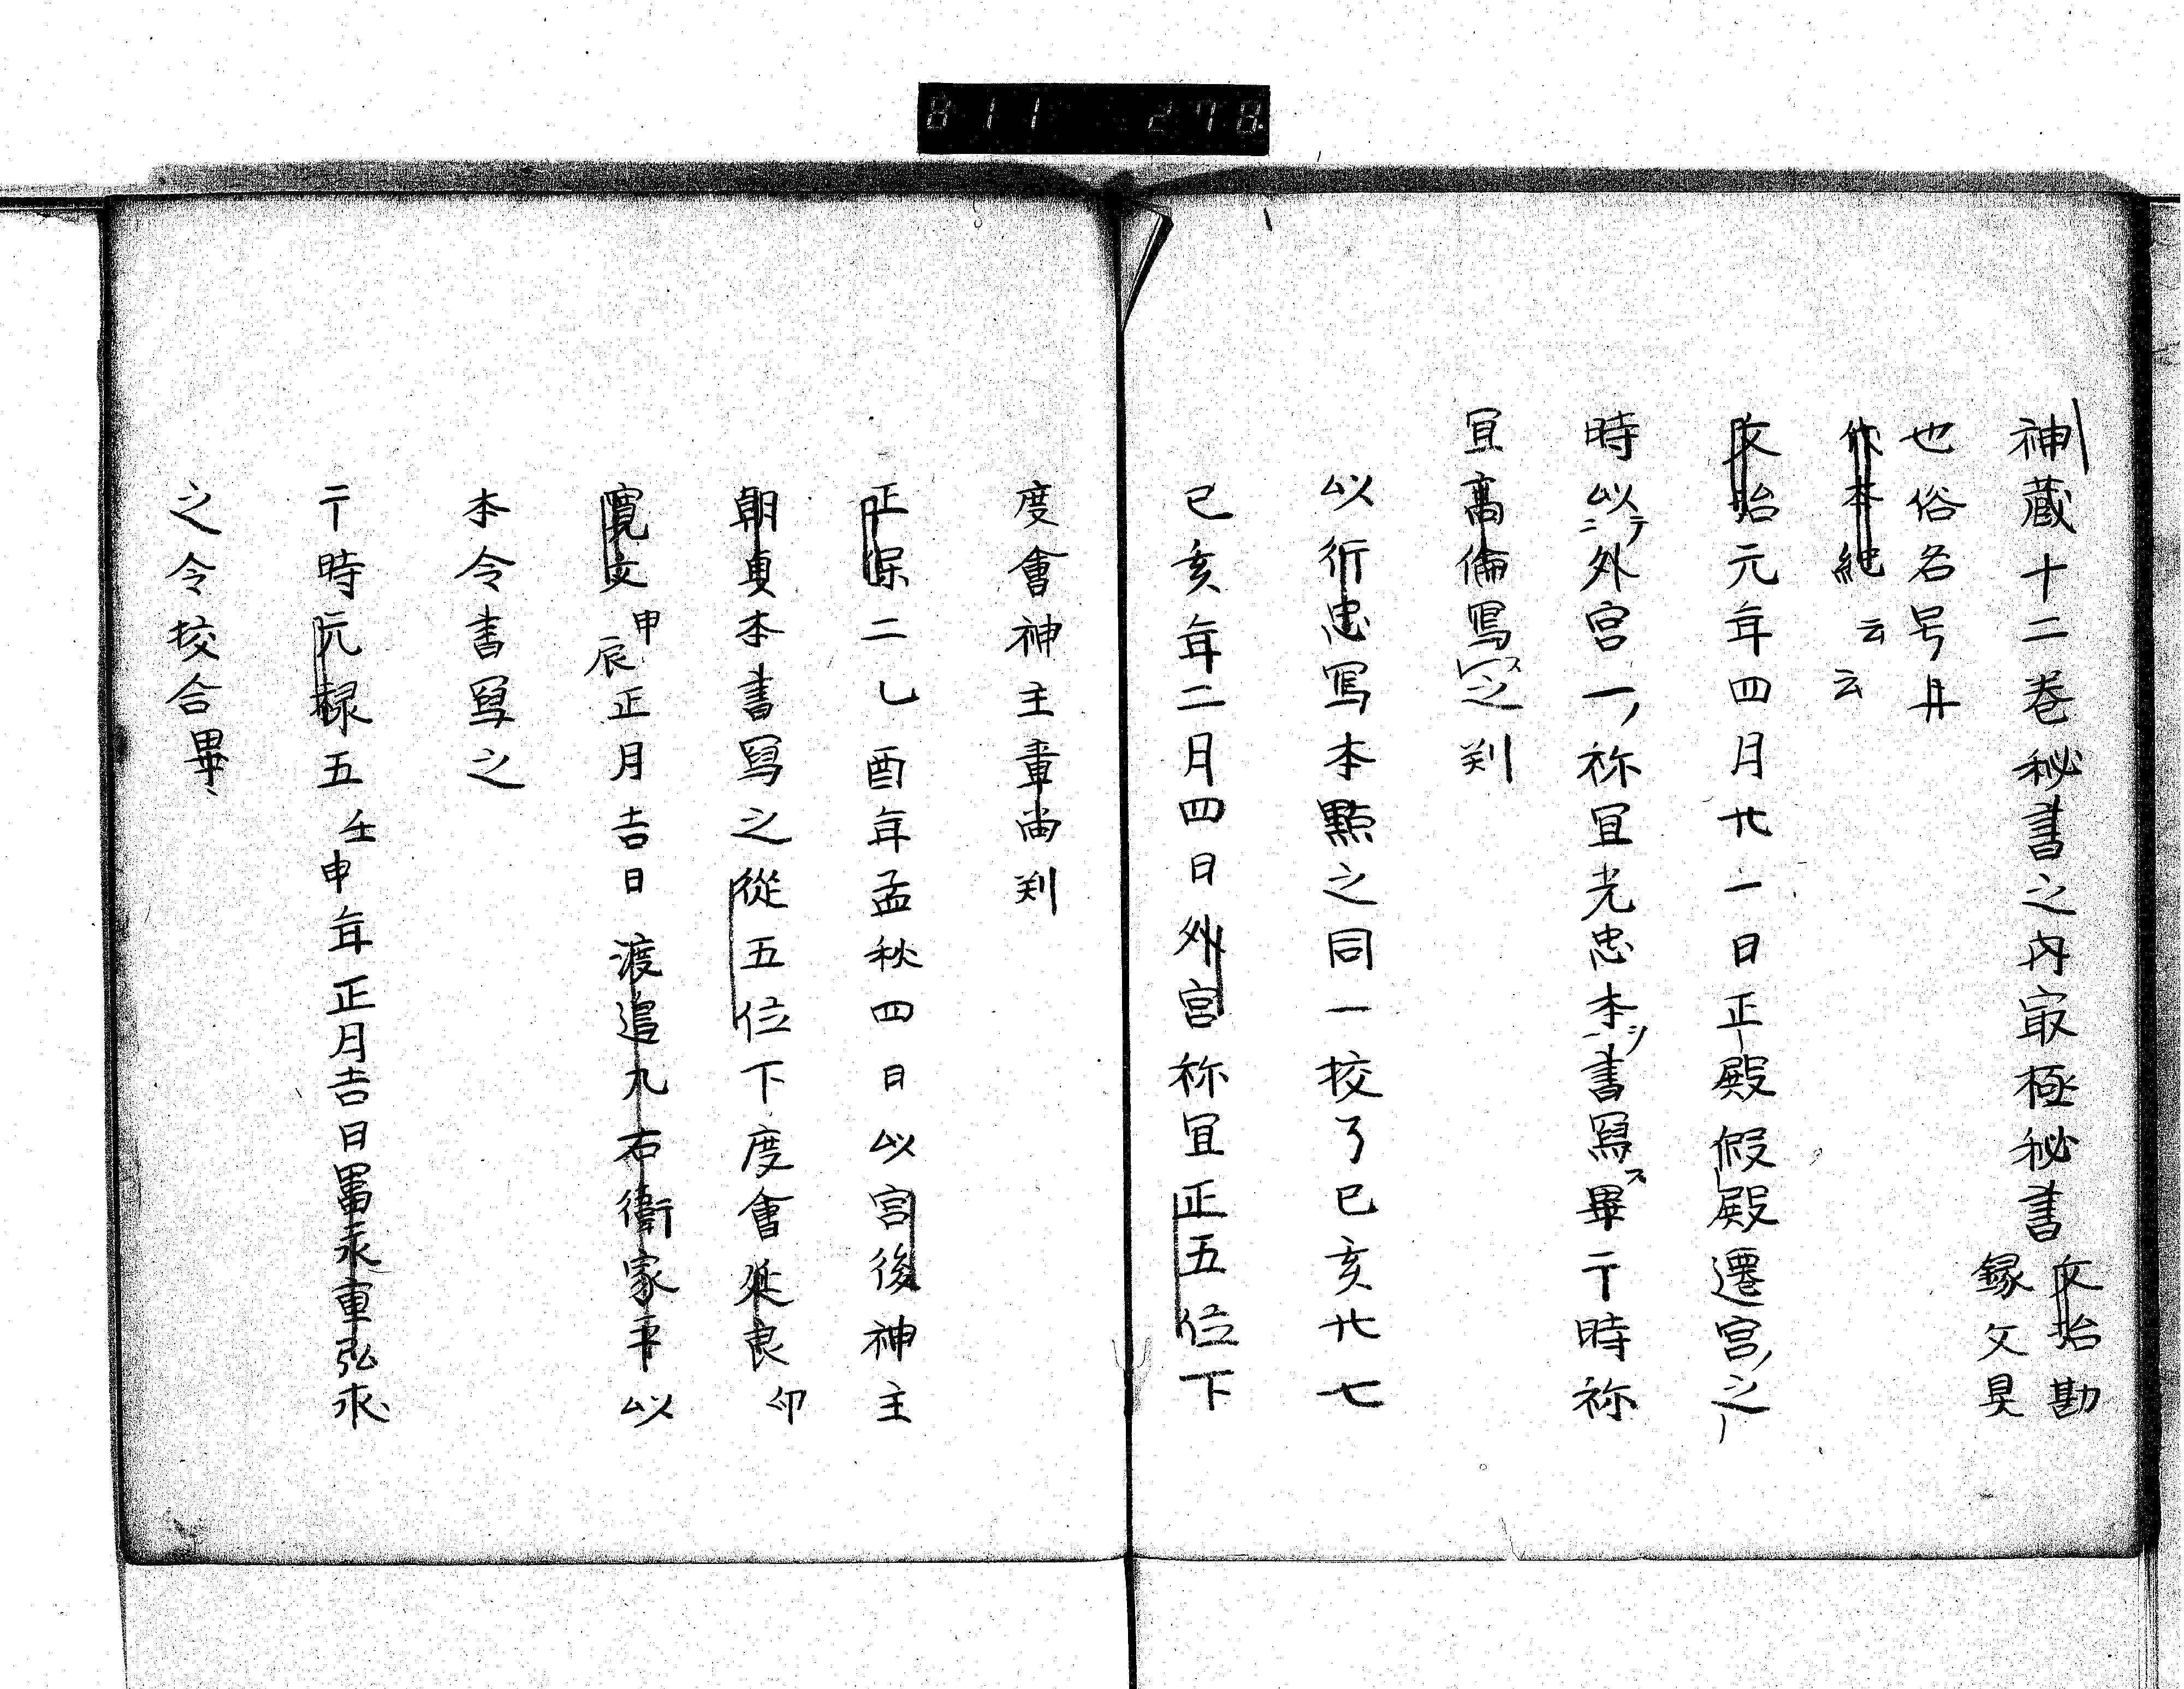 811 278
神蔵十二巻秘書之内冣極秘書 文治勘
録文旲
也俗名号廾
作本紀云云
文治元年四月廿一日正殿假殿遷宮ノ之
時以テ外宮一ノ祢冝光忠本シ書寫ス畢亍時祢
冝高倫寫ス之判
以行忠写本點之同一挍了已亥廿七
已亥年二月四日外宮祢冝正五位下
度會神主章尚判
正保二乚酉年孟秋四日以宮後神主
朝貞本書寫之從五位下度會延良印
寛文申辰正月吉日渡追九右衛家平以
本令書寫之
亍時元禄五壬申年正月吉日 重弘
之令挍合畢